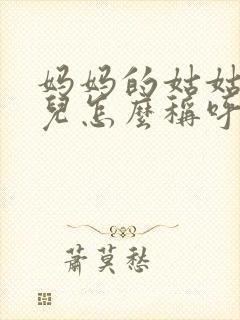 妈妈的姑姑
兒怎麼稱呼
萧莫愁